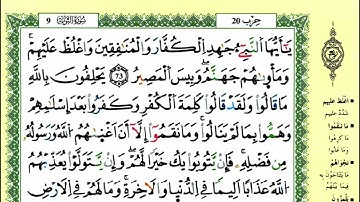 حزب 20
سورة التوبة 9
يَٰأَيُّهَا النَّبِيءُ جَٰهِدِ الْكُفَّارَ وَالْمُنَٰفِقِينَ وَاغْلُظْ عَلَيْهِمْ
وَمَأْوَىٰهُمْ جَهَنَّمُ وَبِيسَ الْمَصِيرُ يَحْلِفُونَ بِاللَّهِ
مَا قَالُوا وَلَقَدْ قَالُوا كَلِمَةَ الْكُفْرِ وَكَفَرُوا بَعْدَ إِسْلَٰمِهِمْ
وَهَمُّوا بِمَا لَمْ يَنَالُوا وَمَا نَقَمُوا إِلَّا أَنْ أَغْنَىٰهُمُ اللَّهُ وَرَسُولُهُ
مِن فَضْلِهِ فَإِن يَتُوبُوا يَكُ خَيْرًا لَّهُمْ وَإِن يَتَوَلَّوْا يُعَذِّبْهُمُ
اللَّهُ عَذَابًا أَلِيمًا فِي الدُّنْيَا وَالْآخِرَةِ وَمَا لَهُمْ فِي الْأَرْضِ
اغلظ عليهم
شدد عليهم
ما نقموا
ما كرهوا
وما عابوا
نجواهم
ما يتناجون به
فيما بينهم
يلمزون